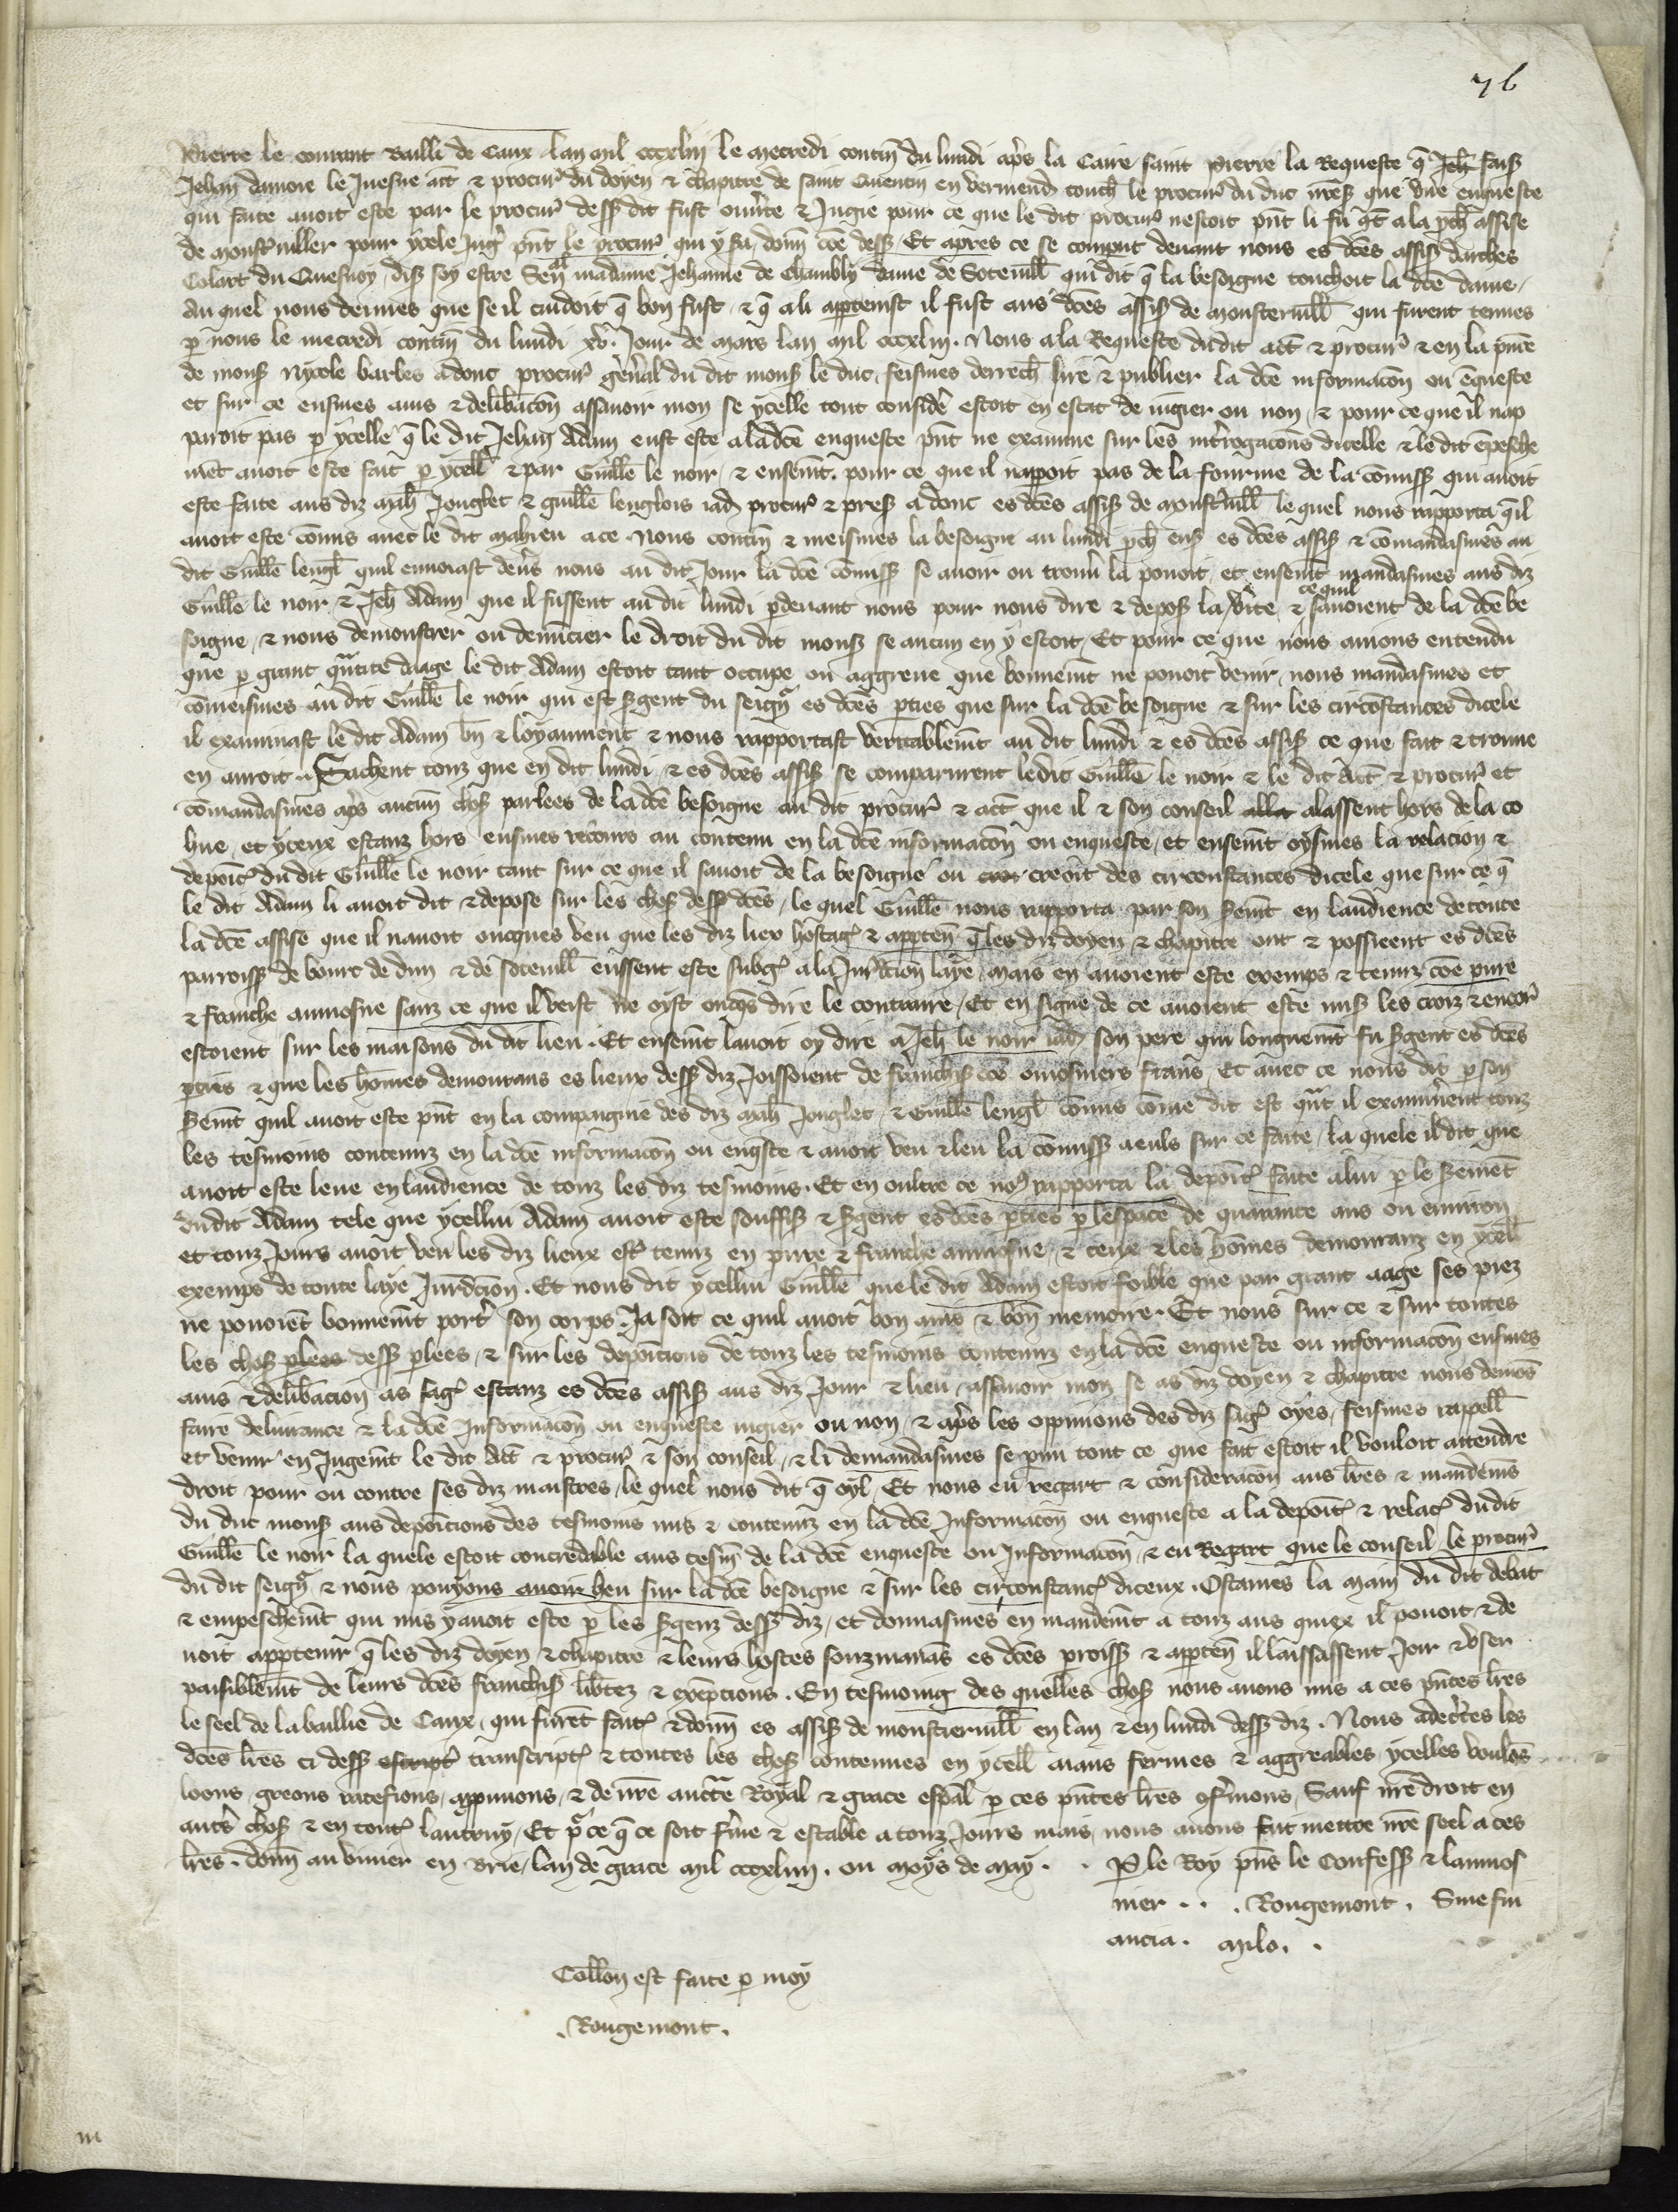 76
Pierre le courant Bailli de Caux lan mil cccxliij le mecredi contin̄ du lundi ap̄s la Caire saint pierre la Requeste q̄ faiſ
Jehan damore le Juesne att̄ & procur̄ du doyen & chapitre de saint Quentin en vermend̄ touch̄ le procur̄ du duc nr̄eſ que vne enqueste
qui faite auoit este par le procur̄ dess dit fust ouu̾te & Jugie pour ce que le dit procur̄ nestoit p̄nt li fu a la p̄ch̄ assise
de monst̾uiller pour ycele Jug̾ p̄nt le procur̄ qui y fu / donn̄ cōe dess / Et apres ce se comput deuant nous es dc̄es assiſ darches
Colart du Quesnoy / diſ soy estre Sen̄al madame Jehanne de Chambly dame de Soteuill̄ qui dit q̄ la besoigne touchoit la dc̄e dame /
Au quel nous deimes que se il cuidoit q̄ bon fust / & q̄ a li apptenist il fust aus dc̄es assiſ de monsteruill̄ qui furent tenues
p nous le mecredi contin̄ du lundi xv. Jour de mars lan mil cccxliij. Nous a la Requeste du dit att̄ & procur̄ & en la p̄nce
de monſ Nycole barbes adonc procur̄ gen̾al du dit monſ le duc / feismes derrech̄ lire & publier la dc̄e informacōn ou ēqueste
et sur ce eusmes auis & delib̾acōn assauoir mon se ycelle tout consid̾e estoit en estat de iugier ou non / & pour ce que il nap
paroit pas p ycelle q̄ le dit Jehan Adam eust este a la dc̄e enqueste p̄nt ne examine sur les int̾rogacōns dicelle & le dit ēpesche
mēt auoit este fait p ycell̄ & par Guill̄e le noir / & ensemt̄. pour ce que il nappoit pas de la fourme de la cōmissſ qui auoit
este faite aus diz mah̄ Jonglet & guill̄e lenglois iadſ procur̄ & preſ adonc es dc̄es assiſ de monst̾uill̄ le quel nous rapporta q̄il
auoit este cōmis auec le dit mahieu a ce. Nous contin̄ & meismes la besoigne au lundi p̄ch̄ enſ es dc̄es assiſ & cōmandasmes au
dit Guill̄e lengl̄ quil enuoiast deu̾s nous au dit Jour la dc̄e cōmissſ se auoir ou trouu̾ la pouoit / et ensemt̄ mandasmes aus diz
Guill̄e le noir & Jeh̄ Adam que il fussent au dit lundi p deuant nous pour nous dire & deposſ la v̾ite & ce quil sauoient de la dc̄e be
soigne / & nous demonstrer ou denūcier le droit du dit monſ se aucun en y estoit / Et pour ce que nous auions entendu
que p grant qᵃtite daage le dit Adam estoit tant occupe ou aggreue que bonnemt̄ ne pouoit venir / nous mandasmes et
cōmeismes au dit Guill̄e le noir qui est S̾gent du seign̄ᵣ es dc̄es pties que sur la dc̄e besoigne & sur les circōstances dicele
il examinast le dit Adam bn̄ & loyaument & nous rapportast veritablemt̄ au dit lundi & es dc̄es assiſ ce que fait & trouue
en auroit. Sachent touz que en dit lundi / & es dc̄es assiſ se comparurent le dit Guill̄e le noir & le dit Att̄ & procur̄ et
cōmandasmes ap̄s aucun̄ choſ parlees de la dc̄e besoigne au dit procur̄ & att̄ que il & son conseil alla alassent hors de la co
hue / et yceux estanz hors eusmes recours au contenu en la dc̄e informacōn ou enqueste / et ensemt̄ oysmes la relacion &
depoīt̾ du dit Guill̄e le noir tant sur ce que il sauoit de la besoigne ou creoit des circonstances dicele que sur ce q̄
le dit Adam li auoit dit & depose sur les choſ dess dc̄es / le quel Guill̄e nous rapporta par son S̾emt̄ en laudience de toute
la dc̄e assise que il nauoit oncques veu que les diz liex hostag̾ & appten̄ q̄ les diz doyen & chapitre ont & possieent es dc̄es
parroissſ de bourc de dun & de soteuill̄ eussent este subg̾ a la Jur̄dcion laye / mais en auoient este exemps & tenuz cōe pure
& franche aumosne sanz ce que il veist ne oyst onq̄s dire le contraire / Et en signe de ce auoient este miſ les croiz & encor̾
estoient sur les maisons du dit lieu. Et ensemt̄ lauoit oy dire a Jeh̄ le noir iadſ son pere qui longuemt̄ fu S̾gent es dc̄es
pties & que les hōmes demourans es lieux dess diz Joissoient de franchiſ cōe omosniers frans Et auec ce nous dit p son
S̾emt̄ quil auoit este p̄nt en la compaignie des diz mah̄ Jonglet & Guill̄e lengl̄ cōmis cōme dit est qᵃt il examin̾ent touz
les tesmoins contenuz en la dc̄e informacōn ou enq̄ste & auoit veu & leu la cōmissſ a euls sur ce faite / la quele il dit que
auoit este leue en laudience de touz les diz tesmoins. Et en oultre ce noꝰ rapporta la depoīt̾ faite a lui p le S̾emēt
du dit Adam tele que ycellui Adam auoit este souffiſ & S̾gent es dc̄es pties p lespace de quarante ans ou enuiron
et touz Jours auoit veu les diz lieux est̾ tenuz en pure & franche aumosne / & ceux & les hōmes demouranz en ycell̄
exemps de toute laye Jur̄dcion. Et nous dit ycellui Guill̄e que le dit Adam estoit foible que par grant aage ses piez
ne pouoiēt bonnemt̄ port̾ son corps. Ja soit ce quil auoit bon auis & bon̄ memoire. Et nous sur ce & sur toutes
les choſ plees dess plees / & sur les depoicions de touz les tesmoins contenuz en la dc̄e enqueste ou informacōn eusmes
auis & delib̾acion as sag̾ estanz es dc̄es assiſ aus diz Jour & lieu / assauoir mon se as diz doyen & chapitre nous deuiōs
faire deliurance & la dc̄e Informacōn ou enqueste iugier ou non / & ap̄s les oppinions des diz sag̾ oyes / feismes rapell̄
et venir en Jugemt̄ le dit Att̄ & procur̄ & son conseil / & li demandasmes se p̄mi tout ce que fait estoit il vouloit attendre
droit pour ou contre ses diz maistres / le quel nous dit q̄ oyl / Et nous eu regart & consideracōn aus lr̄es & mandem̄s
du duc monſ aus depoicions des tesmoins mis & contenuz en la dc̄e Informacōn ou enqueste a la depoīt̾ & relac̾ du dit
Guill̄e le noir la quele estoit concredable aus tesm̄ de la dc̄e enqueste ou Informacōn / & eu Regart que le conseil le procur̄
du dit seign̄ᵣ & nous pouyons auoir heu sur la dc̄e besoigne & sur les circonstanc̾ diceux. Ostames la main du dit debat
& empeschemt̄ qui mis y auoit este p les S̾genz dess diz / et donnasmes en mandemt̄ a touz aus quiex il pouoit & de
uoit apptenir q̄ les diz doyen & chapitre & leurs hostes souzmanās es dc̄es proissſ & appten̄ il laissassent Joir & vser
paisiblemt̄ de leurs dc̄es franchiſ lib̾tez & exēpcions. En tesmoing des quelles choſ nous auons mis a ces p̄ntes lr̄es
le seel de la baillie de Caux / qui furēt fait̾ & donn̄ es assiſ de monstieruill̄ en lan & en lundi dess diz. Nous adec̾tes les
dc̄es lr̄es ci dess escript̾ transcript̾ & toutes les choſ contenues en ycell̄ aians fermes & aggreables / ycelles voulōs
loons / greons ratefions / approuuons / & de nr̄e auctᵉ Royal & grace esp̄al p ces p̄ntes lr̄es 9f̾mons / Sauf nr̄e droit en
autr̾ choſ & en tout̾ lautruy / Et pᵣ ce q̄ ce soit f̾me & estable a touz Jours mais / nous auons fait mettre nr̄e seel a ces
lr̄es. donn̄ au viuier en Brie / lan de grace mil cccxliiij. ou moys de may. . P le Roy p̄ns le Confessſ & laumos
nier . . . Rougemont. Sine fin
ancia. Milo. .
Coll̄on est faite p moy
. Rougemont .